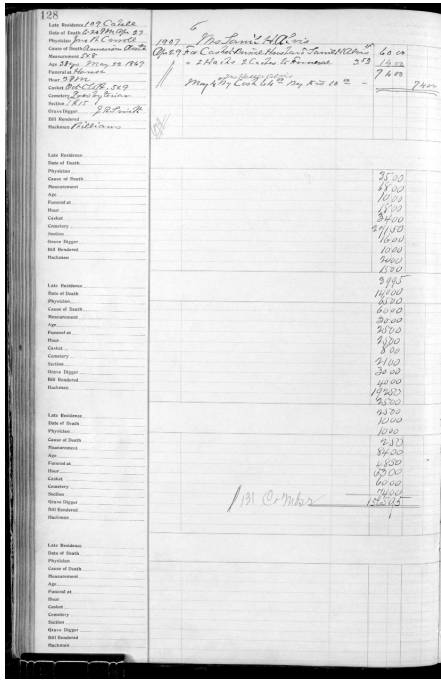 128
6
Late Residence 109 Cabell
Date of Death
Physician Jas R Carroll
Cause of Death
Measurement 5x8
Age 38 yrs May 22 1869
Funeral at House
Hour 3 PM
Casket 5x9
Cemetery Presbyterian
Section
Grave Digger
Bill Rendered
Hackman Williams
1907 Mrs Saml H
Apr 29 For Casket Husband Saml H 60 00
" 2 Hacks 2 to Funeral 3 50 14 00
74 00
May By Cash 64 By 10 00 - 74 00
Late Residence
Date of Death
Physician
Cause of Death
Measurement
Age
Funeral at
Hour
Casket
Cemetery
Section
Grave Digger
Bill Rendered
Hackman
35 00
68 00
10 00
18 00
34 00
271 50
16 00
10 00
20 00
15 00
Late Residence
Date of Death
Physician
Cause of Death
Measurement
Age
Funeral at
Hour
Casket
Cemetery
Section
Grave Digger
Bill Rendered
Hackman
39 95
140 00
65 00
60 00
30 00
25 00
25 00
8 00
21 00
30 00
40 00
192 50
25 00
Late Residence
Date of Death
Physician
Cause of Death
Measurement
Age
Funeral at
Hour
Casket
Cemetery
Section
Grave Digger
Bill Rendered
Hackman
25 00
10 00
10 00
2 50
84 00
48 50
60 00
74 00
Late Residence
Date of Death
Physician
Cause of Death
Measurement
Age
Funeral at
Hour
Casket
Cemetery
Section
Grave Digger
Bill Rendered
Hackman